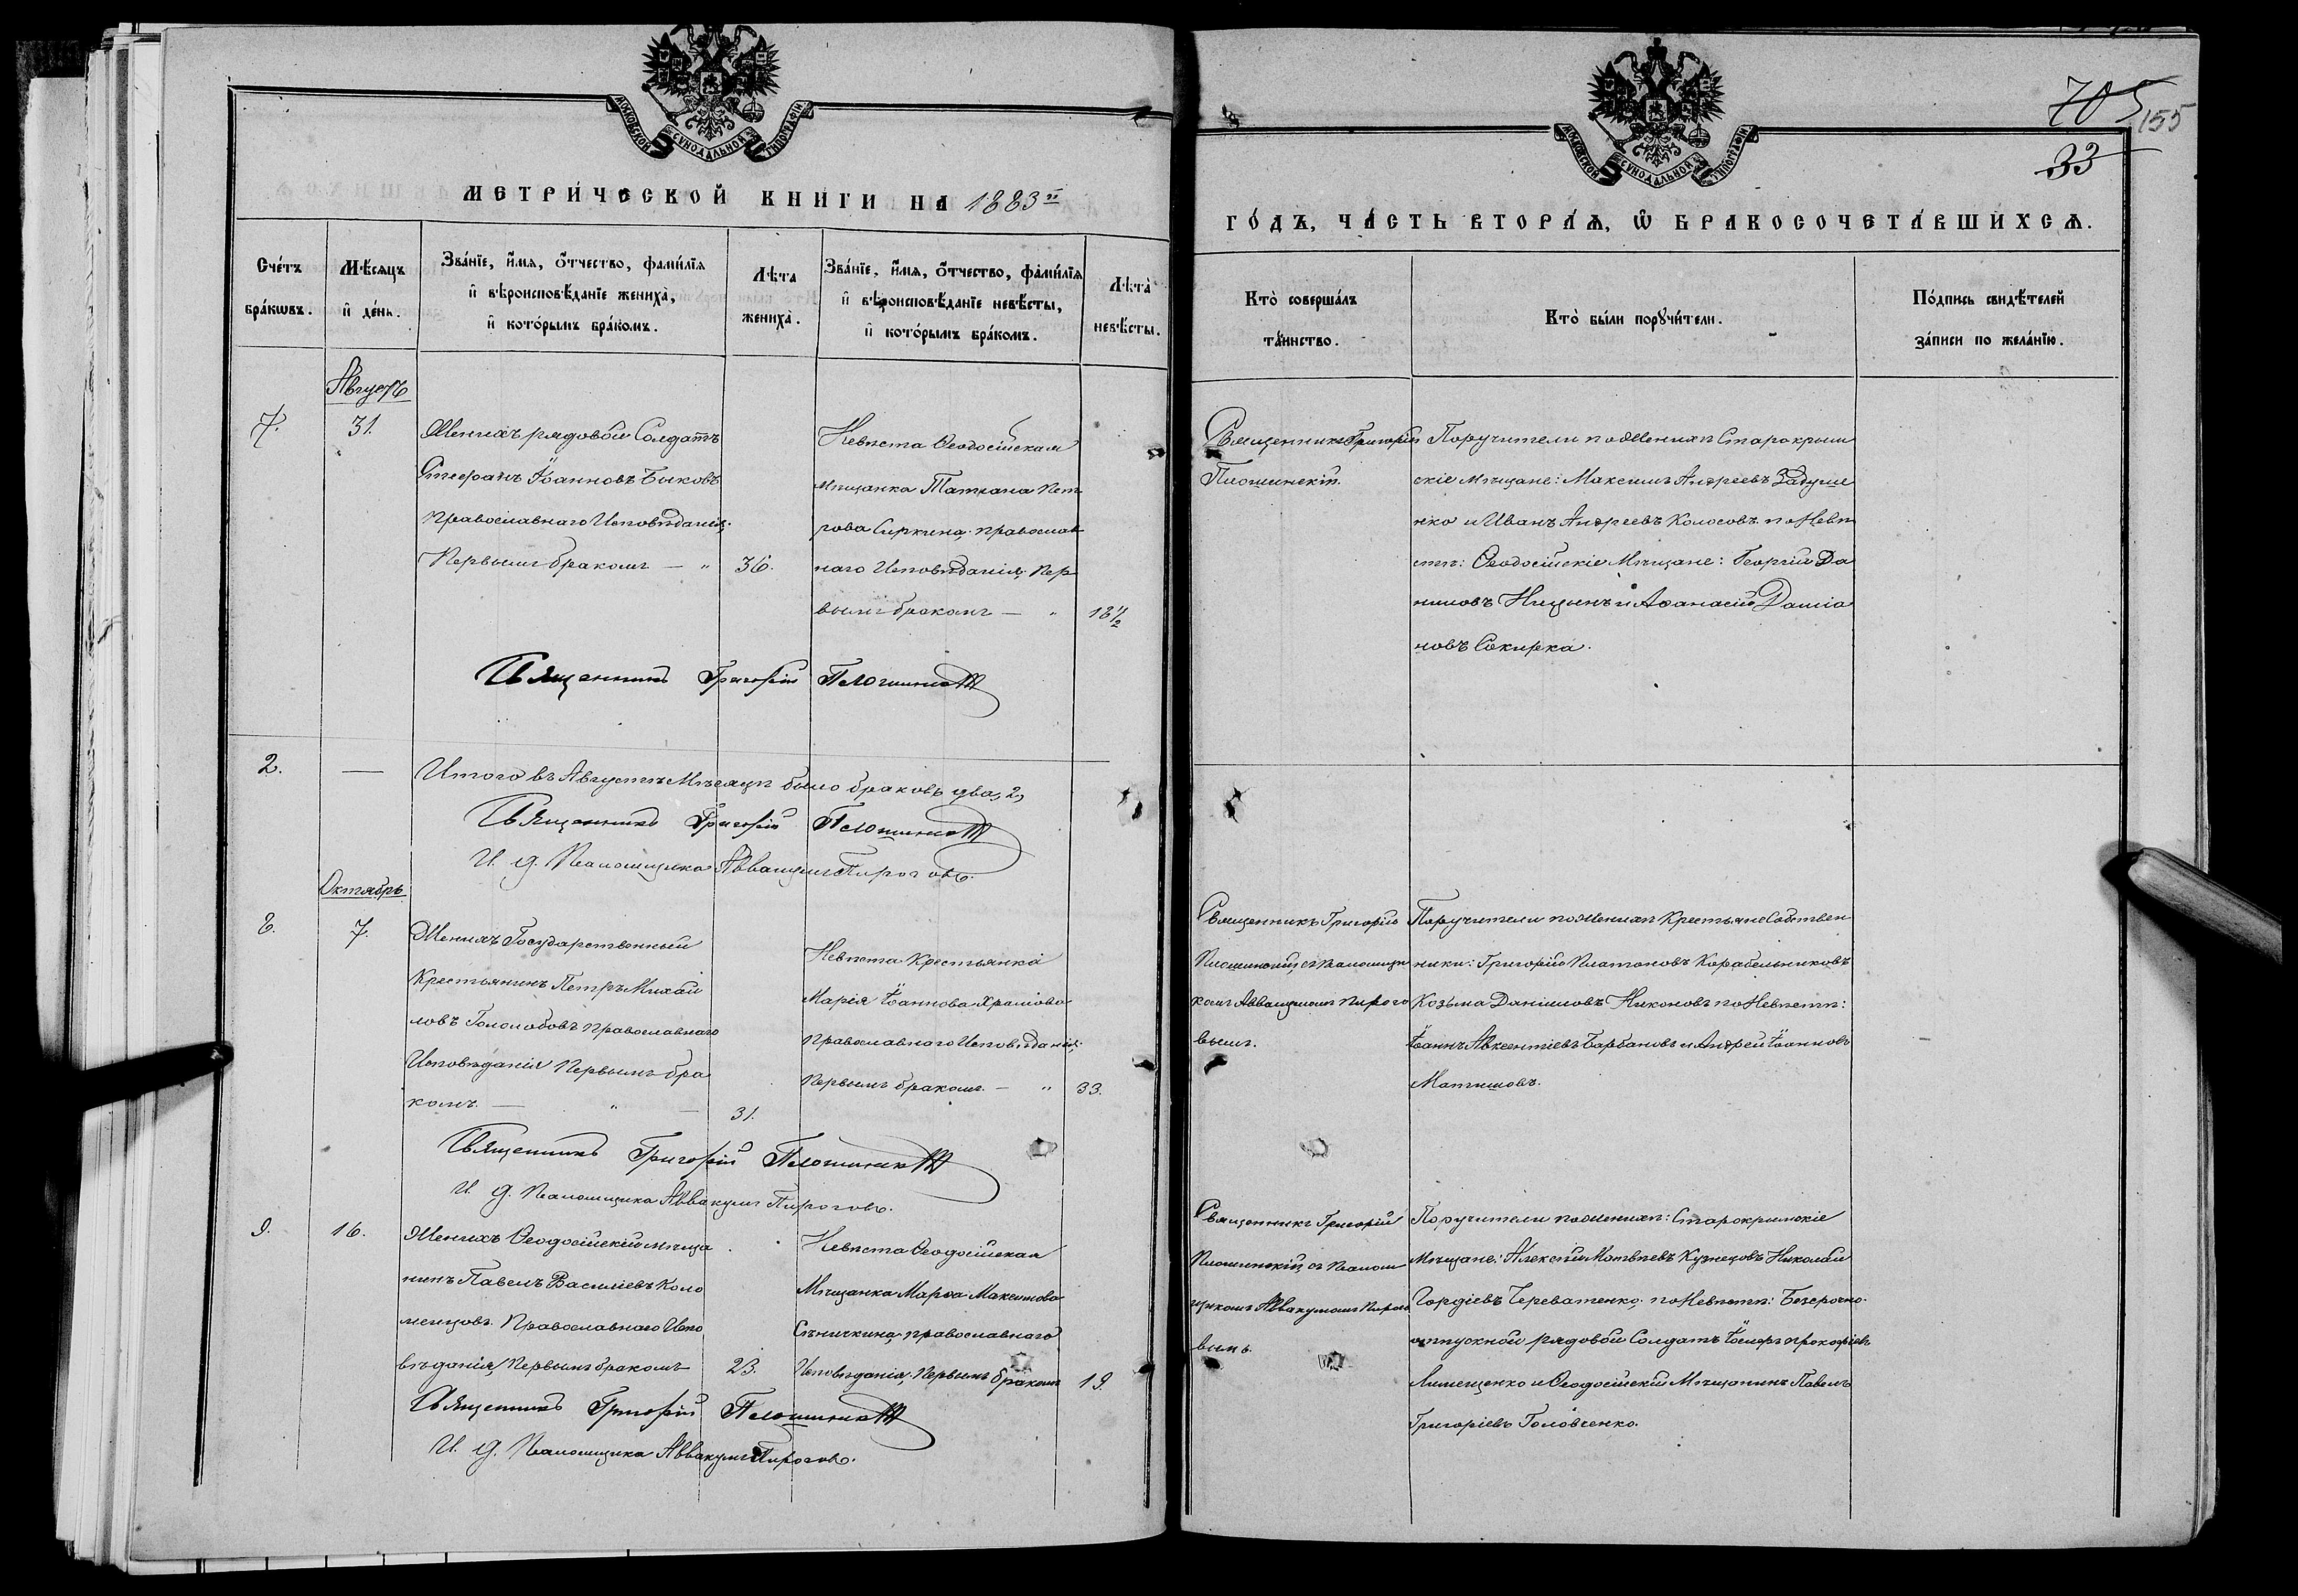 МОСКОВСКОЙ СѴНОДАЛЬНОЙ ТИПОГРАФІИ
МЕТРИ́ЧЕСКОЙ КНИГИ НА 1883й
Сче́тъ бра́кѡвъ.
Мѣ́сяцъ и҆ де́нь.
Зва́нїе, и҆́мя, ѻ҆́тчество, фами́лїя
и҆ вѣроисповѣ́данїе жениха̀,
и҆ кото́рымъ бра́комъ.
Лѣ́та жениха̀.
Зва́нїе, и҆́мя, ѻ҆́тчество, фами́лїя
и҆ вѣроисповѣ́данїе невѣ́сты,
и҆ кото́рымъ бра́комъ.
Лѣ́та невѣ́сты.
Августъ
7.
31.
Женихъ рядовой Солдатъ
Стефанъ Іоанновъ Быковъ
Православнаго Исповѣданія,
Первымъ бракомъ — "
36.
Невѣста Ѳеодосійская
мѣщанка Татiана Пет
рова Сиркина, православ
наго Исповѣданія, Пер
вымъ бракомъ — "
18 1/2
Священникъ Григорій Плошинскій
2.
—
Итого въ Августѣ Мѣсяцѣ было браковъ два, 2,
Священникъ Григорій Плошинскій
И. д. Псаломщика Аввакумъ Пироговъ.
Октябрь
8.
7.
Женихъ Государственный
Крестьянинъ Петръ Михай
ловъ Голомобовъ Православнаго
Исповѣданія Первымъ бра
комъ. — " —
31.
Невѣста Крестьянка
Марія Іоаннова Храмова
Православнаго Исповѣданія,
Первымъ бракомъ. — "
33.
Священникъ Григорій Плошинскій
И. д. Псаломщика Аввакумъ Пироговъ.
9.
16.
Женихъ Ѳеодосійскій мѣща
нинъ Павелъ Василіевъ Коло
менцовъ. Православнаго Испо
вѣданія, Первымъ бракомъ
23.
Невѣста Ѳеодосійская
Мѣщанка Марѳа Максимова
Сѣничкина, православнаго
Исповѣданія, Первымъ бракомъ
19.
Священникъ Григорій Плошинскій
И. д. Псаломщика Аввакумъ Пироговъ.
МОСКОВСКОЙ СѴНОДАЛЬНОЙ ТИПОГРАФІИ
705
155
33
ГО́ДЪ, ЧА́СТЬ ВТОРА́Я, Ѡ҆ БРАКОСОЧЕТА́ВШИХСЯ.
Кто̀ соверша́лъ та́инство.
Кто̀ бы́ли порꙋчи́тели.
По́дпись свидѣ́телей за́писи по жела́нїю.
Священникъ Григорій
Плошинскій.
Поручители по Женихѣ Старокрым
скіе мѣщане: Максимъ Андреевъ Задуше
нко и Иванъ Андреевъ Колосовъ. по Невѣ
стѣ: Ѳеодосійскіе Мѣщане: Георгій Да
ниловъ Нищынъ и Аѳанасій Даміа
новъ Сокирка.
Священникъ Григорій
Плошинскій, съ Псаломщи
комъ Аввакумомъ Пирого
вымъ.
Поручители по Женихѣ Крестьяне Собствен
ники: Григорій Платоновъ Корабельниковъ
Козьма Даніиловъ Никоновъ по Невѣстѣ:
Іоаннъ Авксентіевъ Барбановъ и Андрей Іоанновъ
Матишовъ.
Священникъ Григорій
Плошинскій, съ Псалом
щикомъ Аввакумомъ Пирого
вымъ.
Поручители по женихѣ: Старокрымскіе
Мѣщане: Алексѣй Матвѣевъ Кузнецовъ Николай
Гордіевъ Череватенко, по Невѣстѣ: Безсрочно-
отпускной рядовой Солдатъ Іосифъ Прокофіевъ
Лимещенко и Ѳеодосійскій Мѣщанинъ Павелъ
Григоріевъ Головченко.